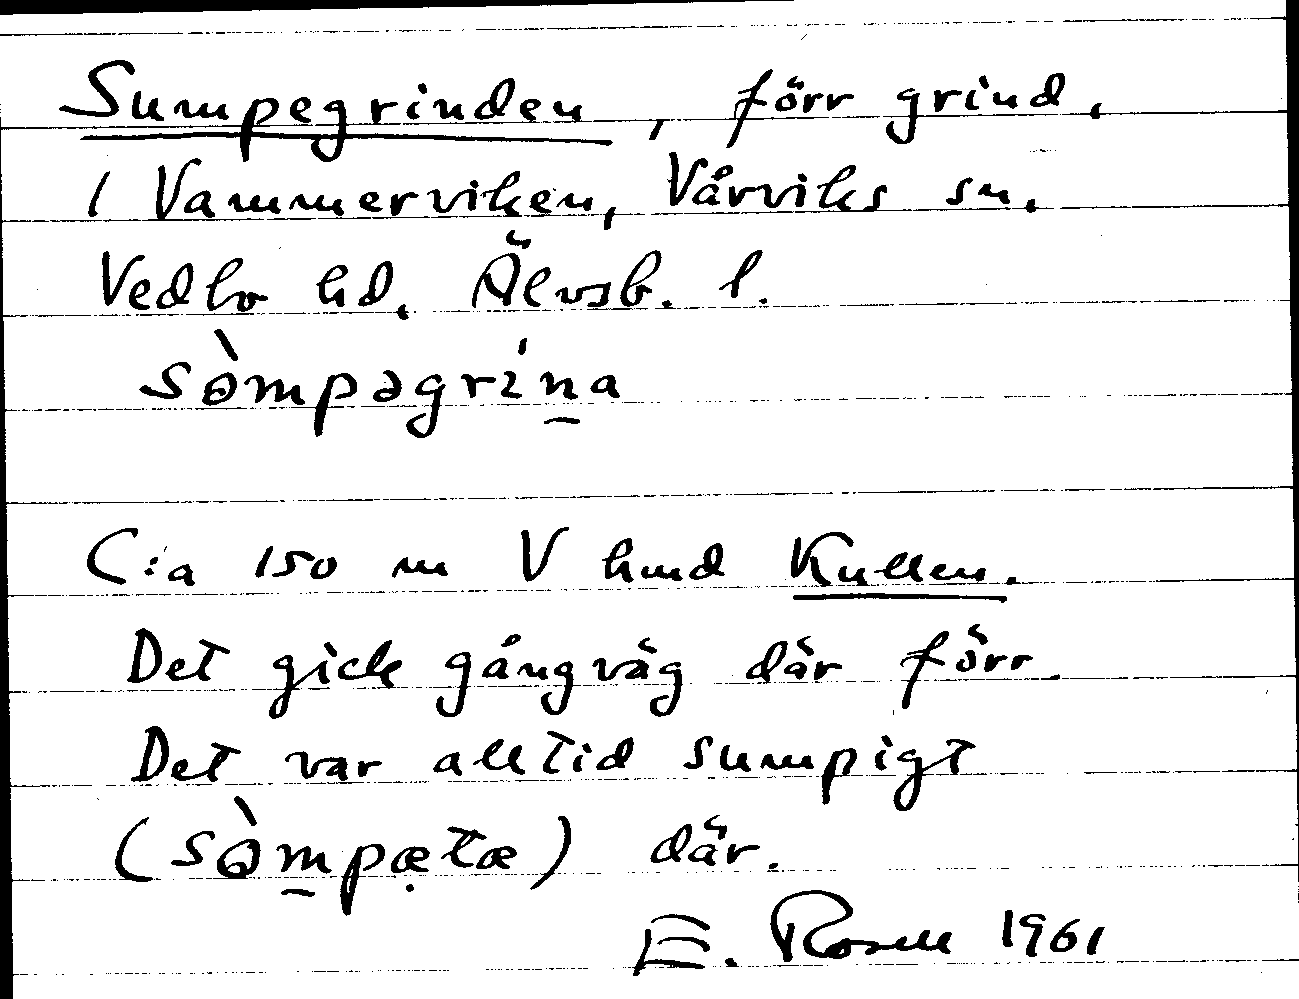 Sumpegrinden, förr grind.
I Vammerviken, Vårviks sn.
Vedbo hd. Älvsb. l.
sɵ̀mpəgrı̍n̠a
C:a 150 m V hmd Kullen.
Det gick gångväg där förr.
Det var alltid sumpigt
(sɵ̀m̠pæ̣tæ) där.
E. Rosell 1961